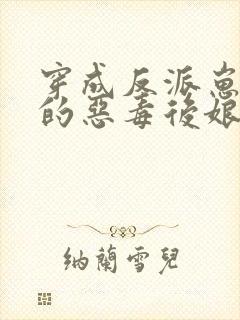 穿成反派崽崽
的惡毒後娘
納蘭雪兒